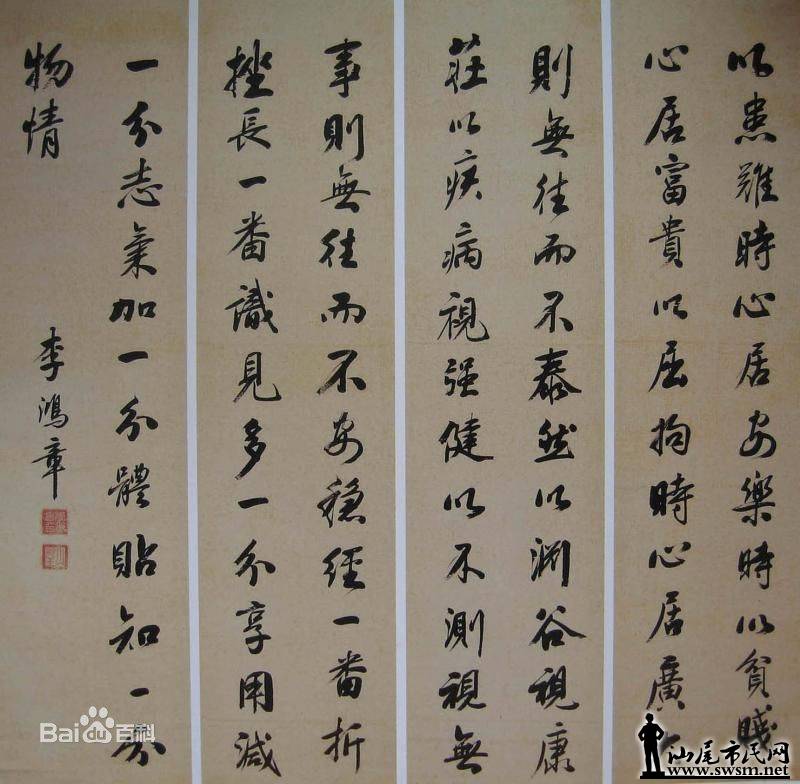 以患難時心居安樂時以貧賤
心居富貴以屈拘時心居廣
則無往而不泰然以淵谷視康
莊以疾病視强健以不測視無
事則無往而不安穩經一番折
挫長一番識見多一分享用減
一分志氣加一分體貼知一分
物情
李鴻章
Bai du 百科
汕尾市民网
www.swsm.net